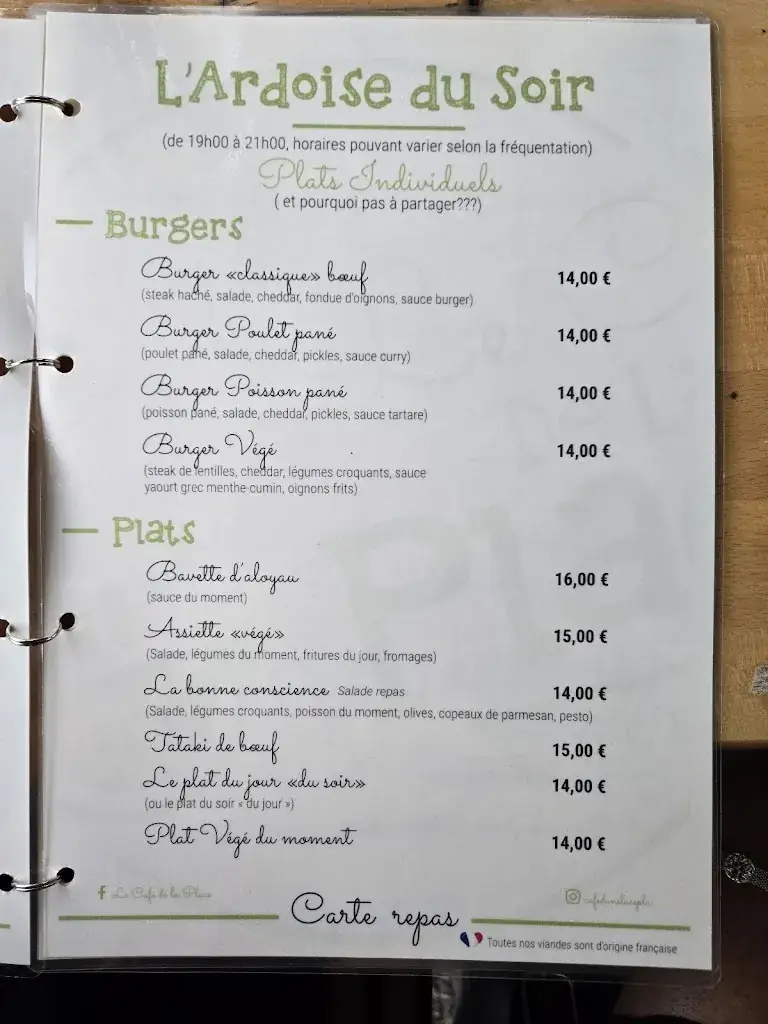 L'Ardoise du Soir
(de 19h00 à 21h00, horaires pouvant varier selon la fréquentation)
Plats Individuels
( et pourquoi pas à partager???)
Burgers
Burger «classique» bœuf 14,00 €
(steak haché, salade, cheddar, fondue d'oignons, sauce burger)
Burger Poulet pané 14,00 €
(poulet pané, salade, cheddar, pickles, sauce curry)
Burger Poisson pané 14,00 €
(poisson pané, salade, cheddar, pickles, sauce tartare)
Burger Végé 14,00 €
(steak de lentilles, cheddar, légumes croquants, sauce
yaourt grec menthe-cumin, oignons frits)
Plats
Bavette d'aloyau 16,00 €
(sauce du moment)
Assiette «végé» 15,00 €
(Salade, légumes du moment, fritures du jour, fromages)
La bonne conscience Salade repas 14,00 €
(Salade, légumes croquants, poisson du moment, olives, copeaux de parmesan, pesto)
Tataki de bœuf 15,00 €
Le plat du jour «du soir» 14,00 €
(ou le plat du soir « du jour »)
Plat Végé du moment 14,00 €
Le Café de la Place
Carte repas
Toutes nos viandes sont d'origine française